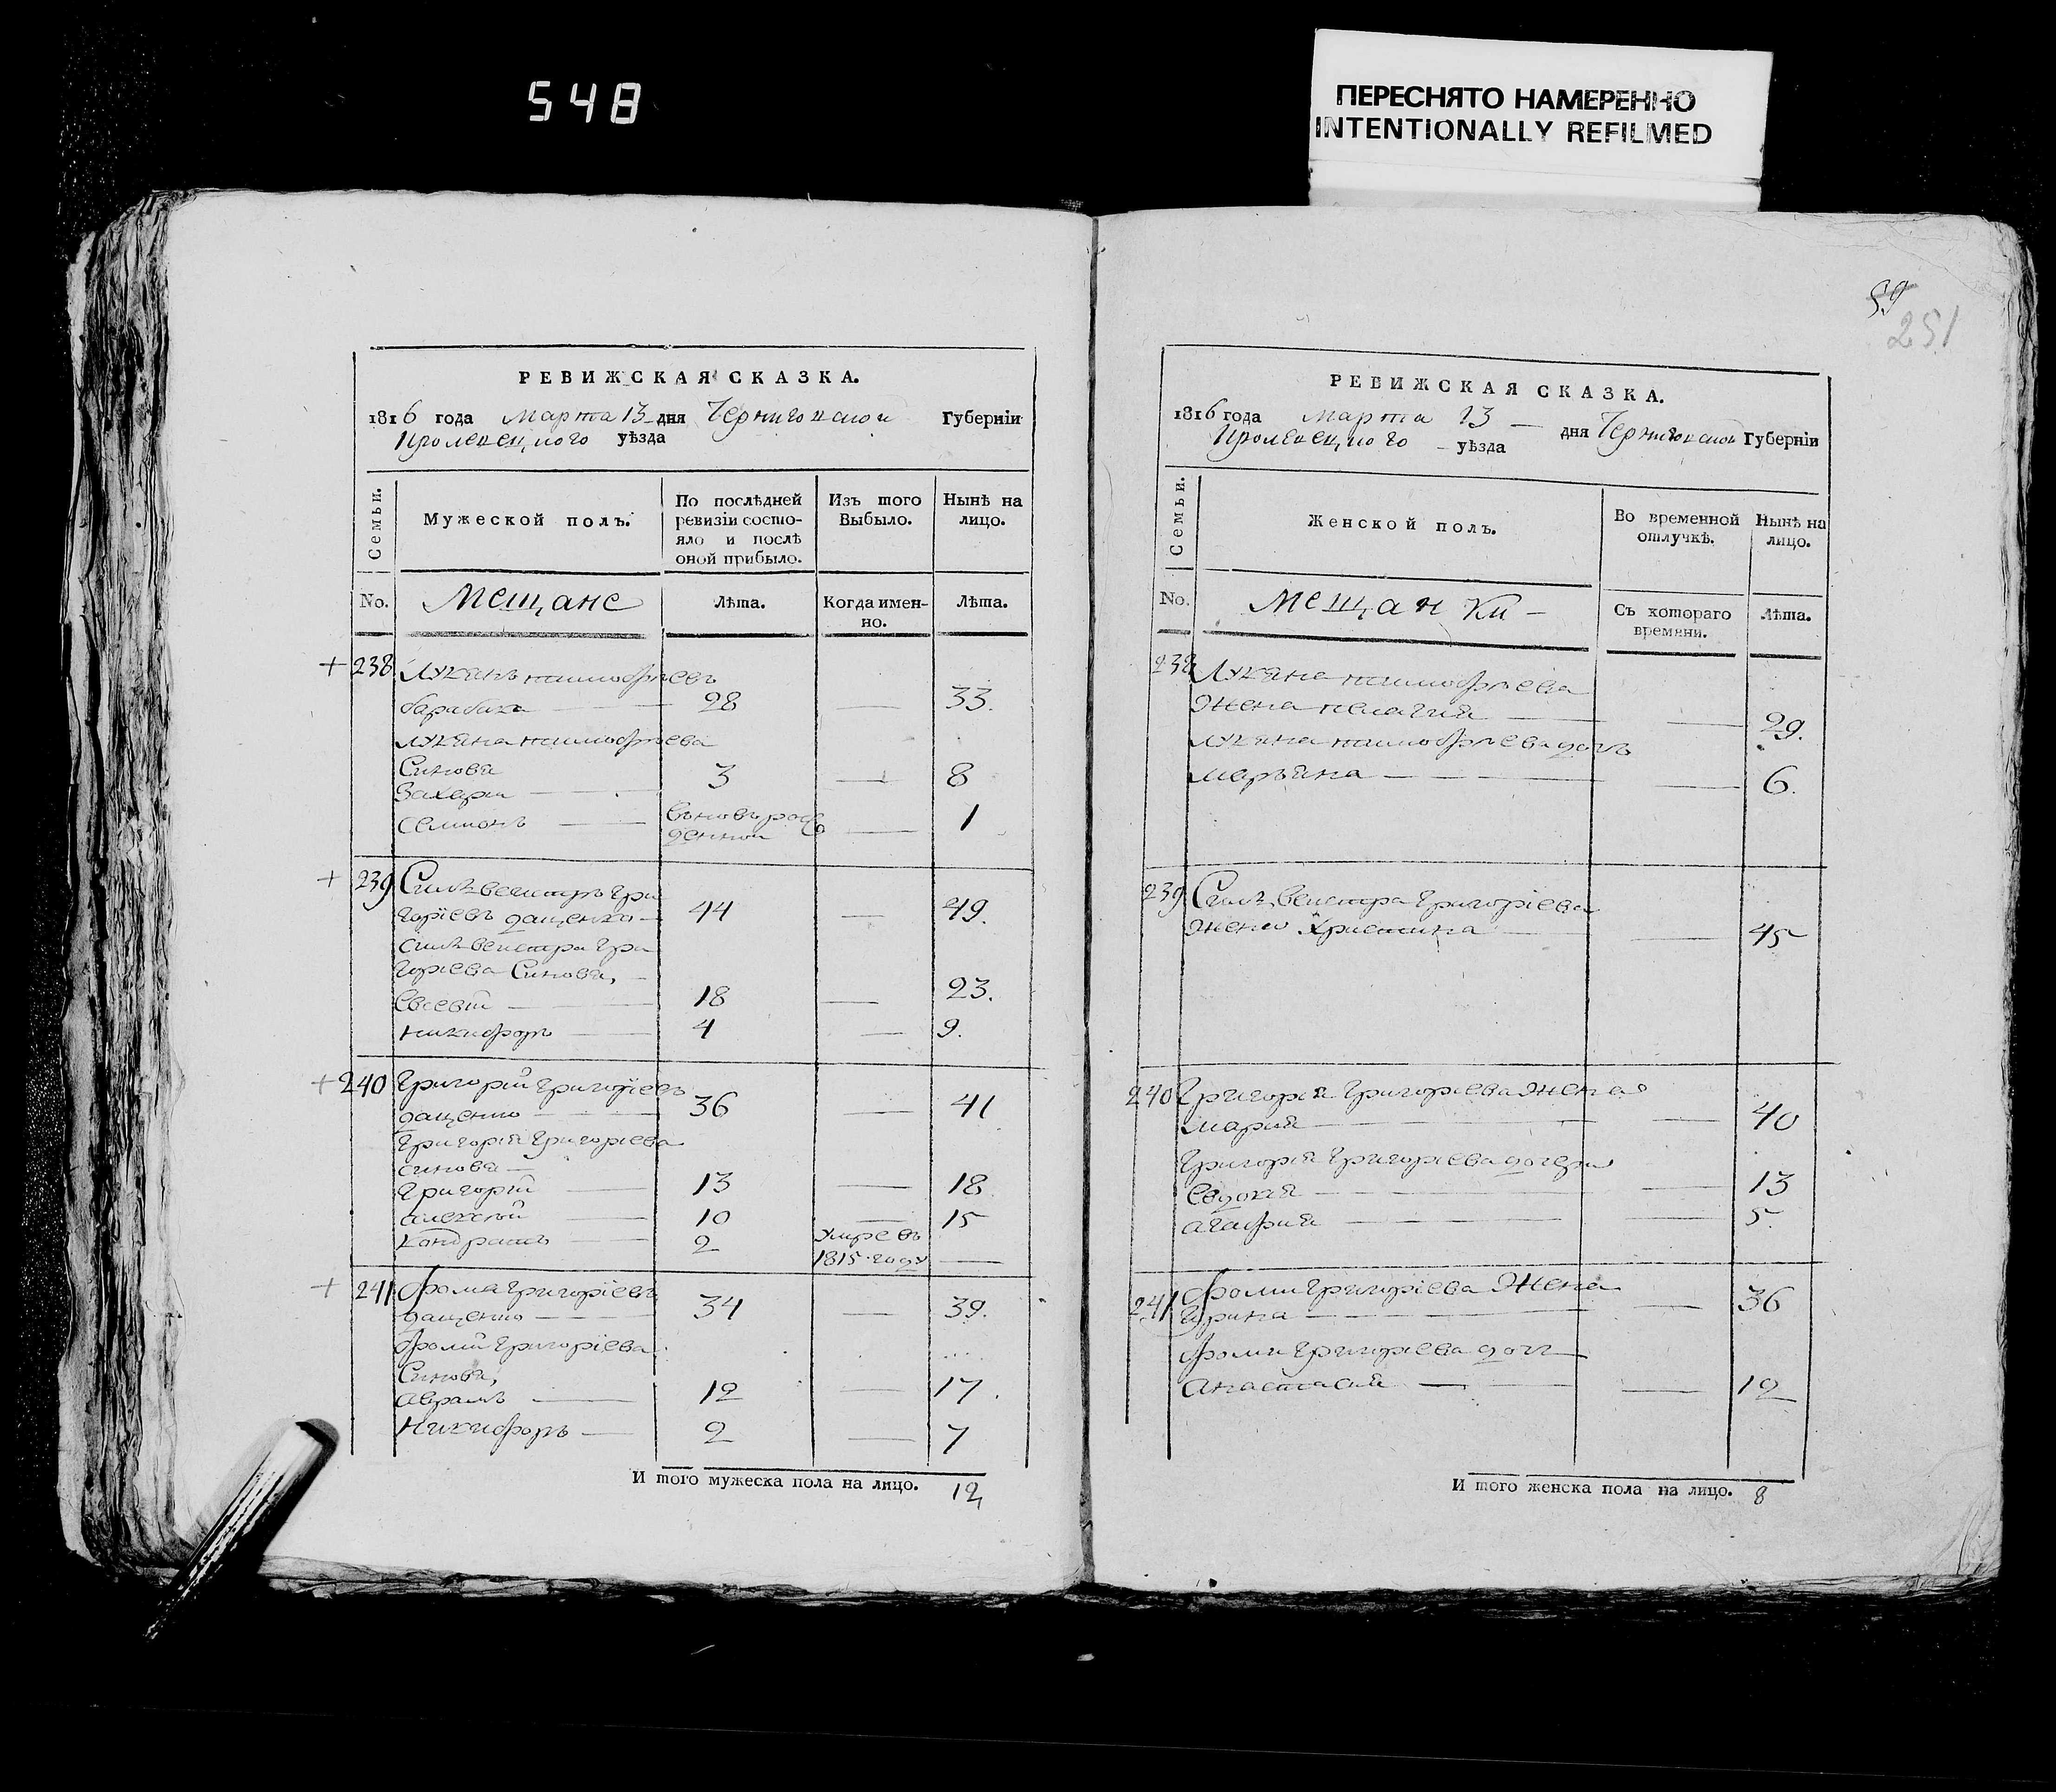 548
ПЕРЕСНЯТО НАМЕРЕННО
INTENTIONALLY REFILMED
59
251
РЕВИЖСКАЯ СКАЗКА.
1816 года Марта 13 дня Черниговской Губерніи
Кролевецкого уѣзда
Семьи.
Мужеской полъ.
По послѣдней ревизіи состо-
яло и послѣ
оной прибыло.
Изъ того
Выбыло.
Нынѣ на
лицо.
No.
Мещане
Лѣта.
Когда имен-
но.
Лѣта.
+ 238 Лукянъ тимофѣевъ
28 33.
лукяна тимофѣева
Синовя
Захари 3 8
семионъ вьновьрож
денной 1
+ 239 Силвестръ Гри
горіевъ дащенко 44 49.
силвестра Гри
горіева Синовя,
Евсевій 18 23.
никифоръ 4 9.
+ 240 Григорій Григоріевъ
дащенко 36 41
Григорія Григоріева
синовя
Григорій 13 18
алексѣй 10 15
кондратъ 2 умре въ
1815 году
+ 241 Фома Григоріевъ
дащенко 34 39.
Фоми Григоріева
Синовя,
аврамъ 12 17.
Никифоръ 2 7
И того мужеска пола на лицо. 12
РЕВИЖСКАЯ СКАЗКА.
1816 года Марта 13 дня Черниговской Губерніи
Кролевецкого уѣзда
Семьи.
Женской полъ.
Во временной
отлучкѣ.
Нынѣ на
лицо.
No.
Мещанки
Съ котораго
времяни.
Лѣта.
238 Лукяна тимофѣева
Жена пелагия 29.
лукяна тимофѣева дочь
маръяна 6.
239 Силвестра Григоріева
жена Христина 45
240 Григория Григоріева жена
мария 40
Григорія Григоріева дочери
Евдокия 13
агафия 5.
241 Фоми Григоріева Жена
Ирина 36
Фоми Григоріева дочь
Анастасия 12
И того женска пола на лицо. 8